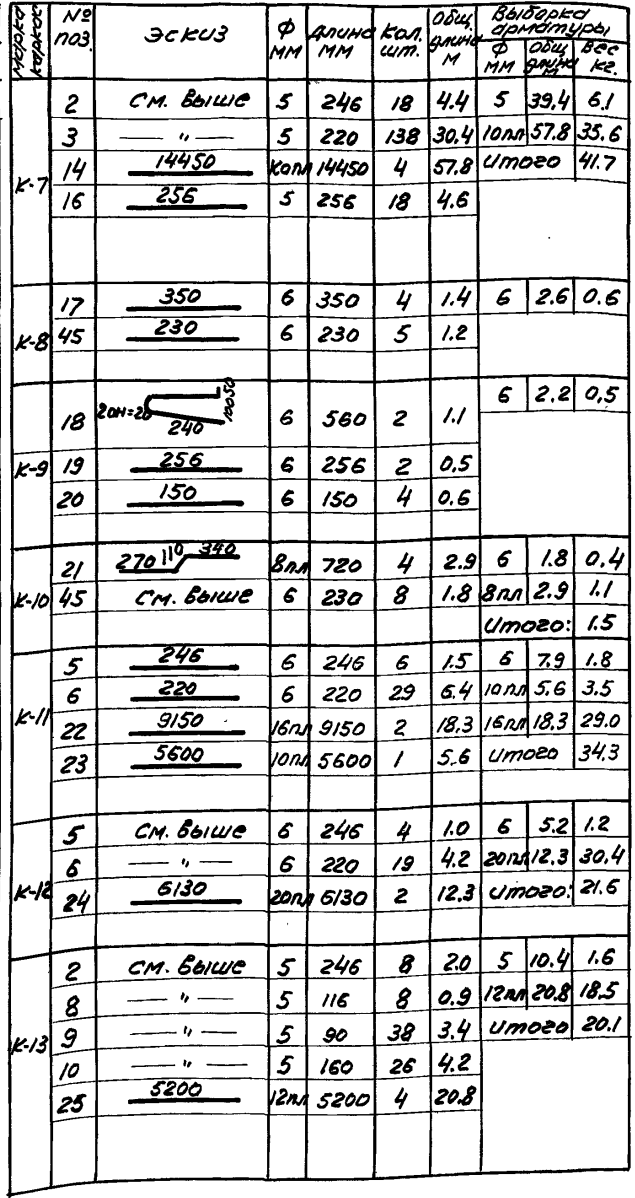 Марка каркаса № поз. Эскиз Ф мм Длина мм Кол. шт. Общ. длина м Выборка арматуры
Ф мм Общ. длина м Вес кг.
К-7
2 См. выше 5 246 18 4.4 5 39.4 6.1
3 — " — 5 220 138 30.4 10пл 57.8 35.6
14 14450 14450 4 57.8 Итого 41.7
16 256 5 256 18 4.6
К-8
17 350 6 350 4 1.4 6 2.6 0.6
45 230 6 230 5 1.2
К-9
6 2.2 0,5
18 240 100 50 6 560 2 1.1
19 256 6 256 2 0.5
20 150 6 150 4 0.6
К-10
21 270 110 340 8пл 720 4 2.9 6 1.8 0.4
45 См. выше 6 230 8 1.8 8пл 2.9 1.1
Итого: 1.5
К-11
5 246 6 246 6 1.5 6 7.9 1.8
6 220 6 220 29 6.4 10пл 5.6 3.5
22 9150 16пл 9150 2 18.3 16пл 18.3 29.0
23 5600 10пл 5600 1 5.6 Итого 34.3
К-12
5 См. выше 6 246 4 1.0 6 5.2 1.2
6 — " — 6 220 19 4.2 20пл 12.3 30.4
24 6130 20пл 6130 2 12.3 Итого: 21.6
К-13
2 См. выше 5 246 8 2.0 5 10.4 1.6
8 — " — 5 116 8 0.9 12пл 20.8 18.5
9 — " — 5 90 38 3.4 Итого 20.1
10 — " — 5 160 26 4.2
25 5200 12пл 5200 4 20.8